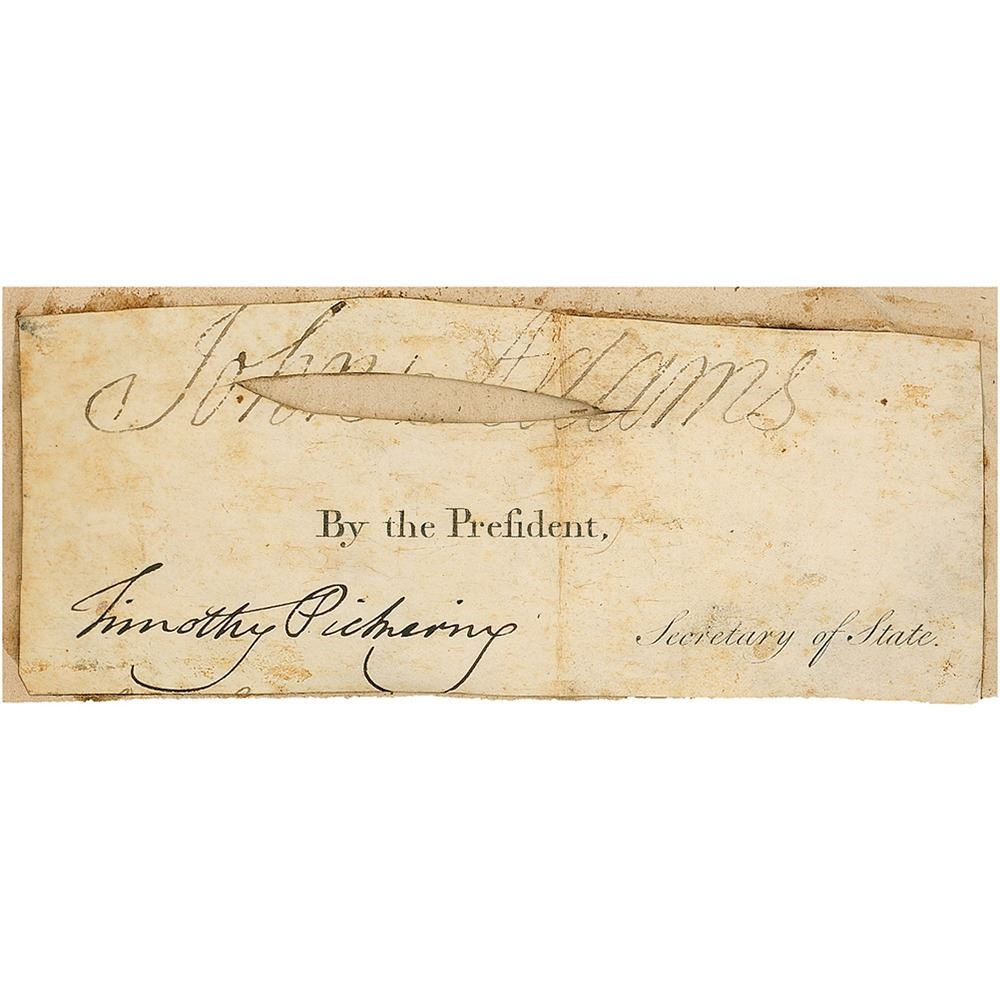 John Adams
By the Preſident,
Timothy Pickering
Secretary of State.